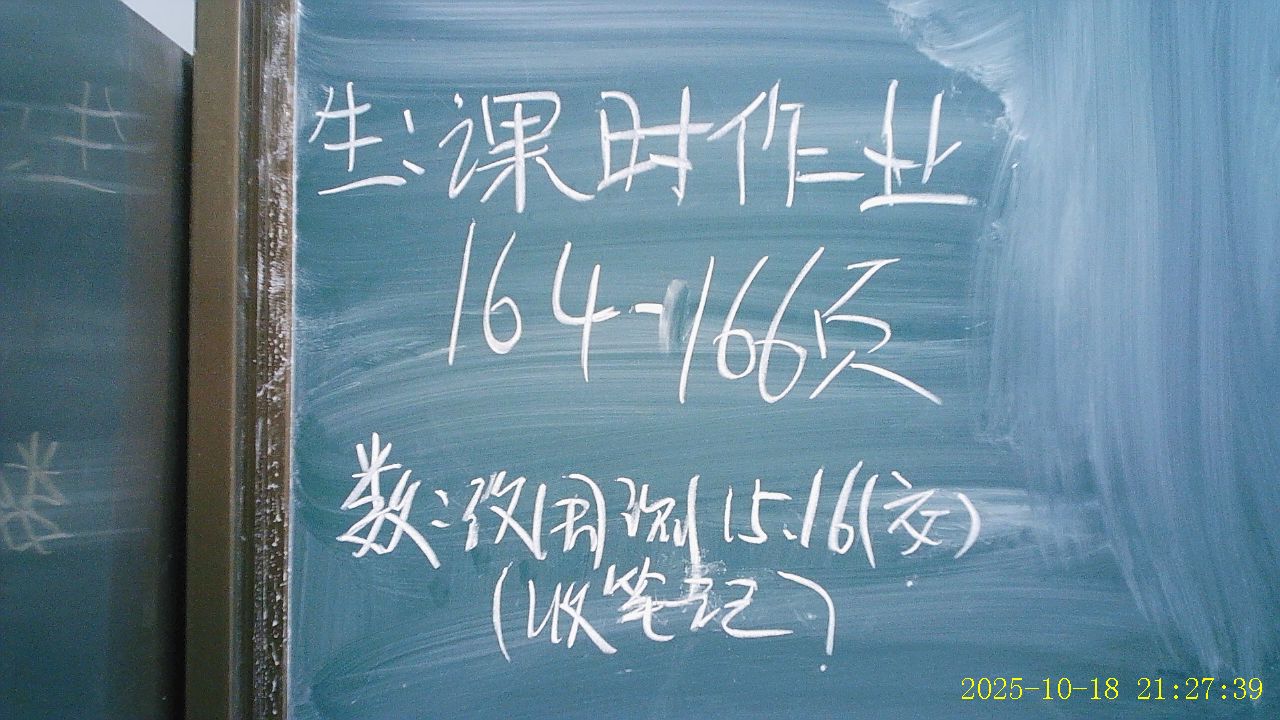 生:课时作业
164-166页
数:改周测15.16(交)
(收笔记)
2025-10-18 21:27:39